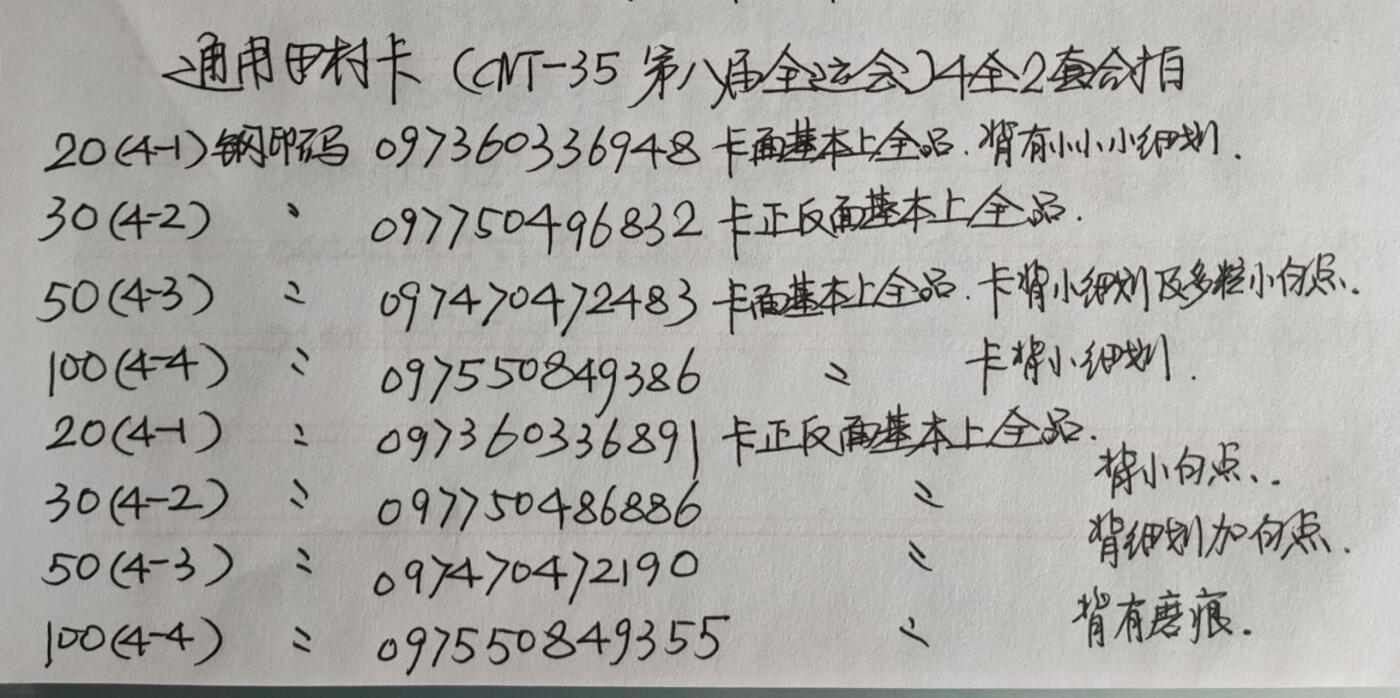 通用田村卡（CNT-35第八届全运会）4全2套合拍
20(4-1)钢印码 097360336948 卡面基本上全品.背有小小小细划.
30(4-2) 〃 097750496832 卡正反面基本上全品.
50(4-3) 〃 097470472483 卡面基本上全品.卡背小细划及多粒小白点.
100(4-4) 〃 097550849386 〃 卡背小细划.
20(4-1) 〃 097360336891 卡正反面基本上全品.
30(4-2) 〃 097750486886 〃 背小白点、.
50(4-3) 〃 097470472190 〃 背细划加白点.
100(4-4) 〃 097550849355 〃 背有磨痕.